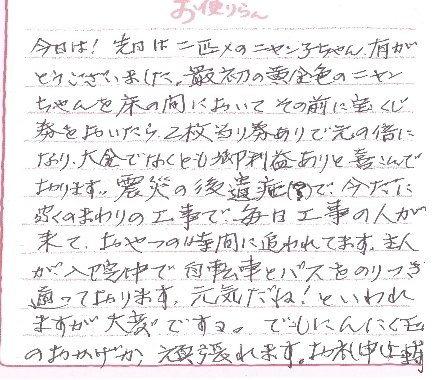 お便りらん
今日は！先日は二匹メのニャン子ちゃん有が
とうございました。最初の黄金色のニャン
ちゃんを床の間において その前に宝くじ
券をおいたら、2枚当り券ありで元の倍に
なり、大金でなくとも御利益ありと喜こんで
おります。震災の後遺症(?)で、今だに
家のまわりの工事で、毎日工事の人が
来て、おやつの時間に追われてます。主人
が入院中で自転車とバスをのりつぎ
通っております。元気だね！といわれ
ますが大変ですョ。でもにんにく玉
のおかげか、頑張れます。お礼申し上げ